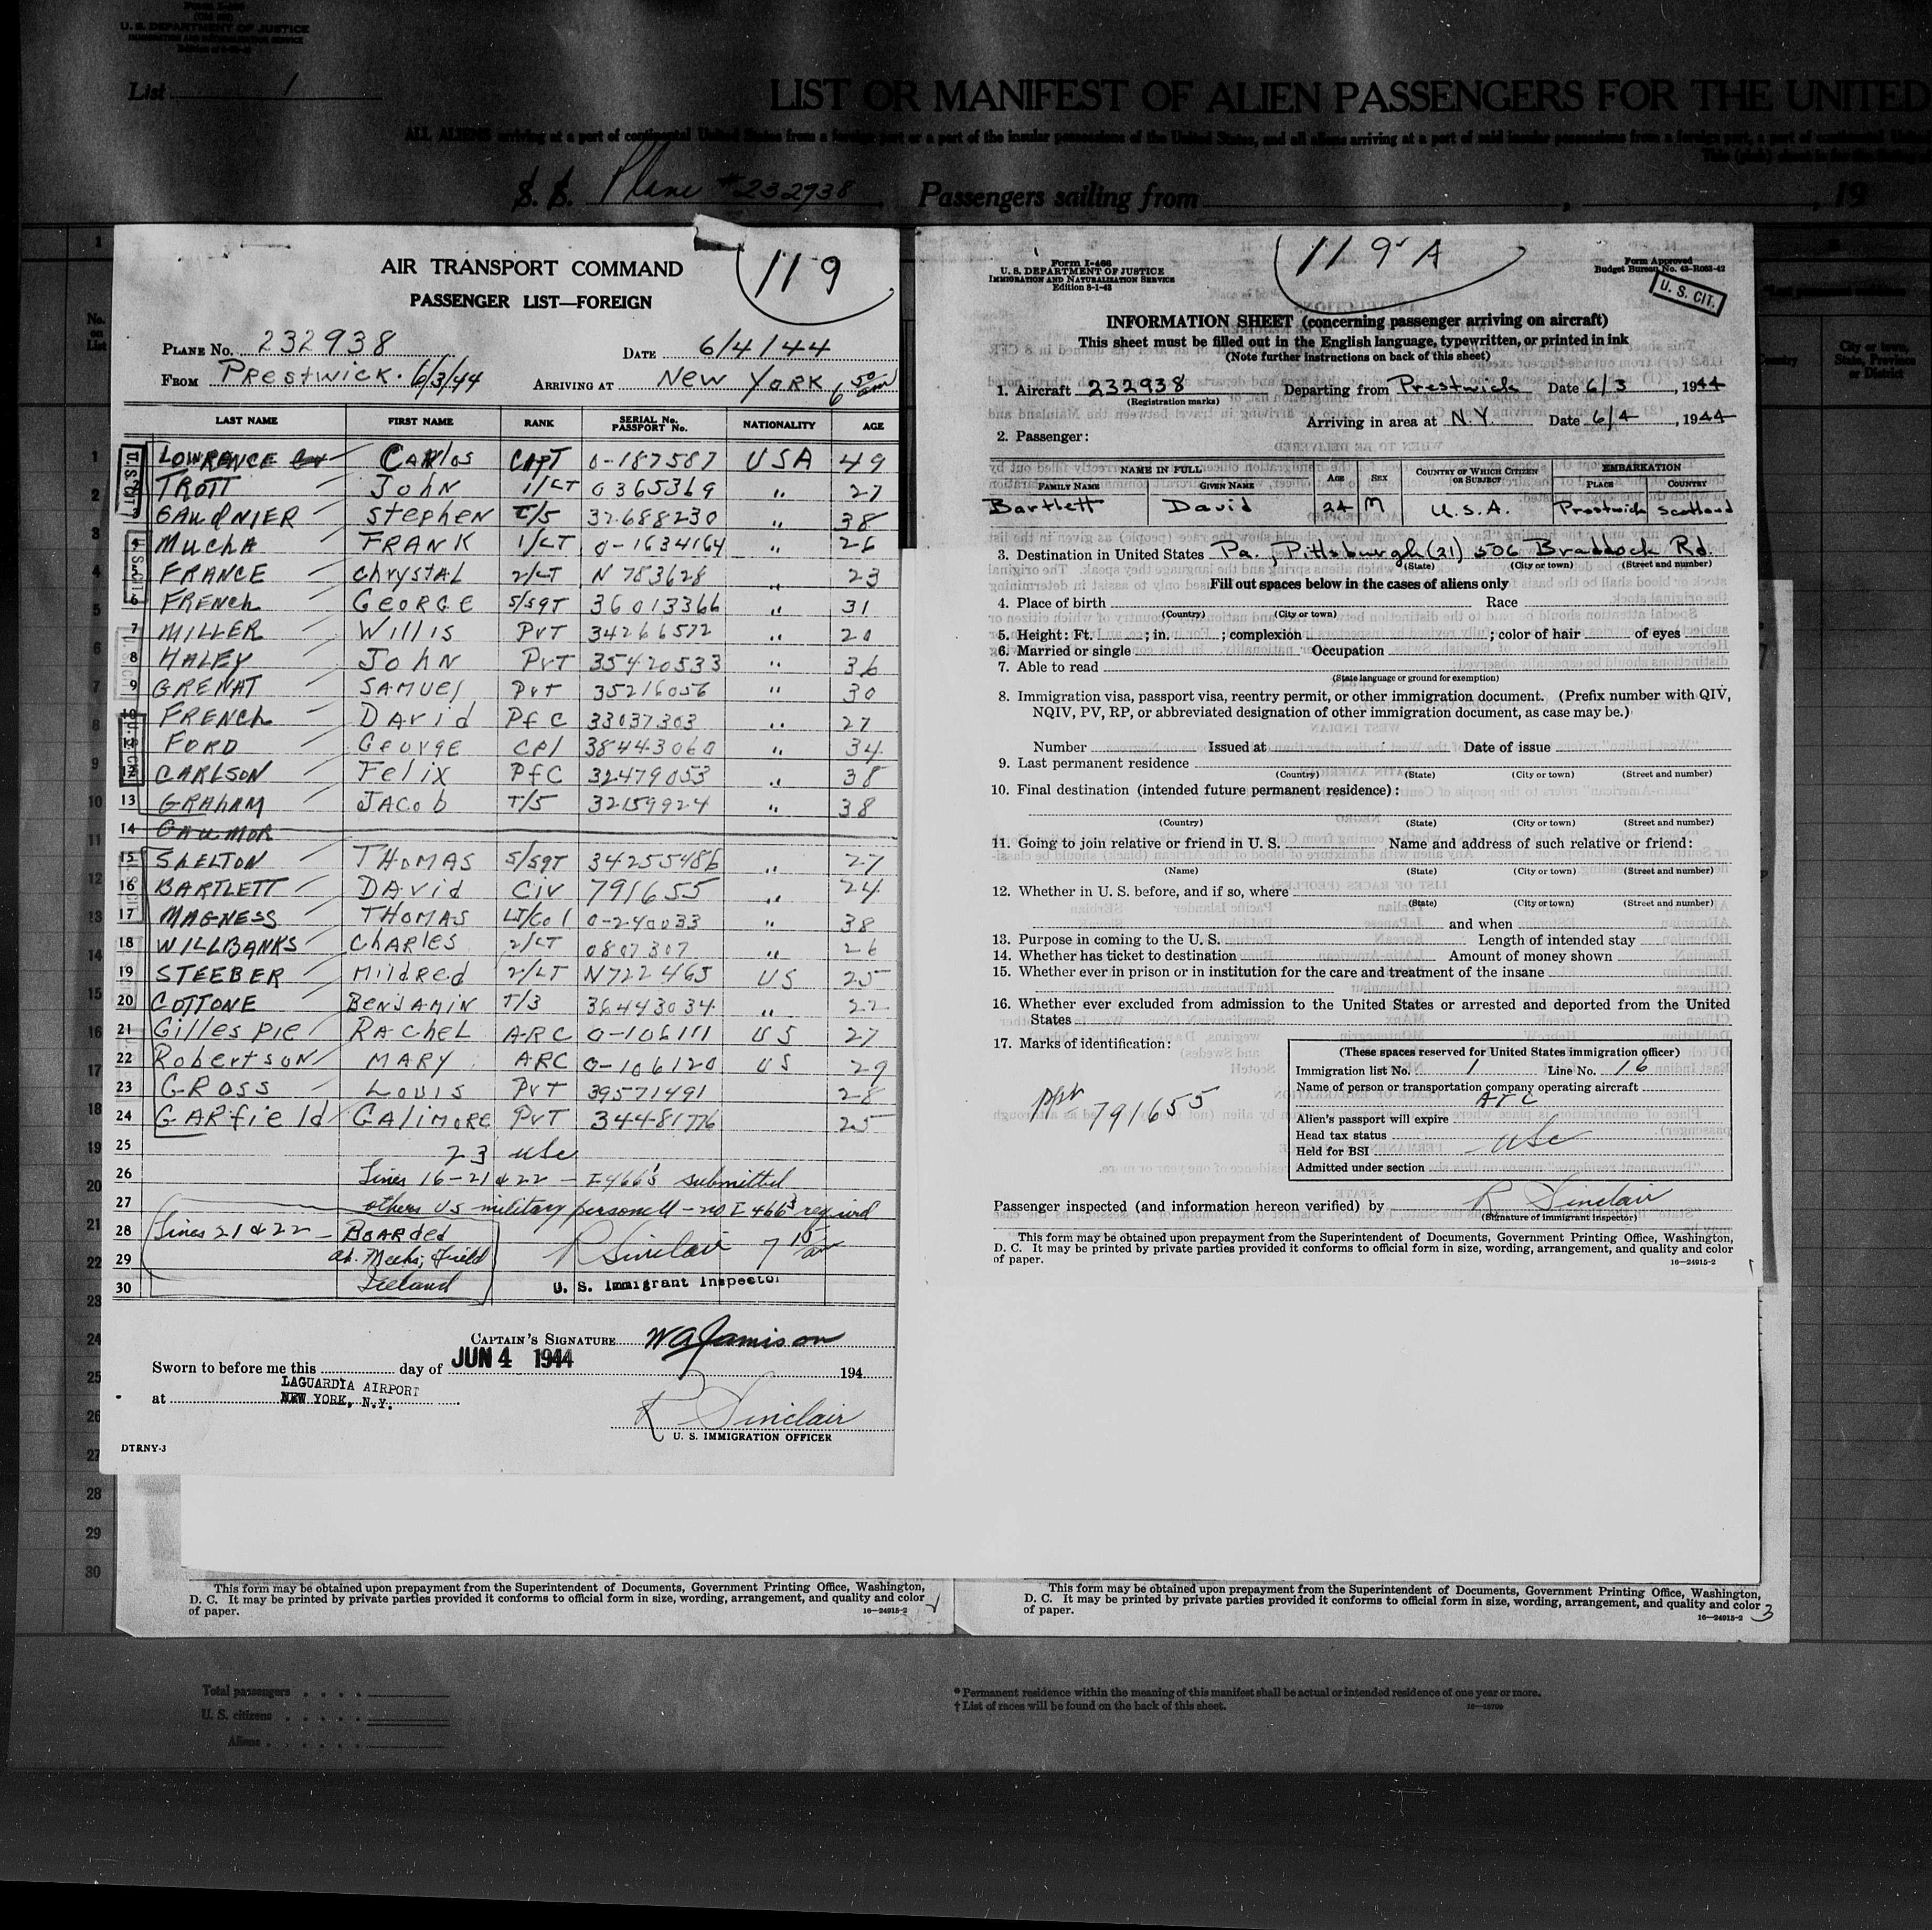 U. S. DEPARTMENT OF JUSTICE
List 1
LIST OR MANIFEST OF ALIEN PASSENGERS FOR THE UNITED
ALL ALIENS arriving at a port of continental United States from a foreign port or a port of the insular possessions of the United States, and all aliens arriving at a port of said insular possessions from a foreign port, a port of continental
S. S. Plane # 232938 Passengers sailing from , , 19
119
AIR TRANSPORT COMMAND
PASSENGER LIST—FOREIGN
PLANE No. 232938 DATE 6/4/44
FROM Prestwick. 6/3/44 ARRIVING AT New York 6 50 am
LAST NAME FIRST NAME RANK SERIAL No. PASSPORT No. NATIONALITY AGE
1 LOWRANCE CARlos CAPT 0-187587 USA 49
2 TROTT JOHN 1/LT 0365369 " 27
3 GAUDNIER StepHEN T/5 32688230 " 38
4 MUCHA FRANK 1/LT 0-1634164 " 26
5 FRANCE ChrystAL 2/LT N 783628 " 23
6 FRENCH GEORGE S/SGT 36013366 " 31
7 MILLER Willis PVT 34266572 " 20
8 HALEY JOHN PVT 35420533 " 36
9 GRENAT SAMUEl PVT 35216056 " 30
10 FRENCh DAVid PfC 33037303 " 27
11 FORD GEORGE CPl 38443060 " 34
12 CARLSON Felix PfC 32479053 " 38
13 GRAHAM JACob T/5 32159924 " 38
14 GALIMOR
15 SHELTON THOMAS S/SGT 34255486 " 27
16 BARTLETT DAVid CIV 791655 " 24
17 MAGNESS THOMAS LT/Col 0-240033 " 38
18 WILLBANKS CHARlES 2/LT 0807307 " 26
19 STEEBER Mildred 2/LT N722465 US 25
20 COTTONE BENJAMIN T/3 36443034 " 22
21 Gillespie RAChEL ARC 0-106111 US 27
22 Robertson MARY ARC 0-106120 US 29
23 GROSS LOUIS PVT 39571491 28
24 GARfield GALIMORE PVT 34481776 25
25 23 USC
26 Lines 16-21 & 22 - I466's submitted
27 others US military personell - no I 466s required
28 Lines 21 & 22 - Boarded
29 at. Meeks Field R Sinclair 7 10 am
30 Iceland U. S. Immigrant Inspector
CAPTAIN'S SIGNATURE WAJamison
Sworn to before me this day of JUN 4 1944 194
LAGUARDIA AIRPORT
at NEW YORK, N.Y.
R Sinclair
U. S. IMMIGRATION OFFICER
DTRNY-3
119 A
Form I-466
U. S. DEPARTMENT OF JUSTICE
IMMIGRATION AND NATURALIZATION SERVICE
Edition 8-1-43
Form Approved
Budget Bureau No. 43-R063-42
U. S. CIT.
INFORMATION SHEET (concerning passenger arriving on aircraft)
This sheet must be filled out in the English language, typewritten, or printed in ink
(Note further instructions on back of this sheet)
1. Aircraft 232938 Departing from Prestwick Date 6/3, 1944
(Registration marks)
Arriving in area at N.Y. Date 6/4, 1944
2. Passenger:
NAME IN FULL AGE SEX COUNTRY OF WHICH CITIZEN OR SUBJECT EMBARKATION
FAMILY NAME GIVEN NAME PLACE COUNTRY
Bartlett David 24 M U.S.A. Prestwick Scotland
3. Destination in United States Pa., Pittsburgh (21) 506 Braddock Rd.
(State) (City or town) (Street and number)
Fill out spaces below in the cases of aliens only
4. Place of birth Race
(Country) (City or town)
5. Height: Ft. ; in. ; complexion ; color of hair of eyes
6. Married or single Occupation
7. Able to read
(State language or ground for exemption)
8. Immigration visa, passport visa, reentry permit, or other immigration document. (Prefix number with QIV,
NQIV, PV, RP, or abbreviated designation of other immigration document, as case may be.)
Number Issued at Date of issue
9. Last permanent residence
(Country) (State) (City or town) (Street and number)
10. Final destination (intended future permanent residence):
(Country) (State) (City or town) (Street and number)
11. Going to join relative or friend in U. S. Name and address of such relative or friend:
(Name) (State) (City or town) (Street and number)
12. Whether in U. S. before, and if so, where
(State) (City or town) (Street and number)
and when
13. Purpose in coming to the U. S. Length of intended stay
14. Whether has ticket to destination Amount of money shown
15. Whether ever in prison or in institution for the care and treatment of the insane
16. Whether ever excluded from admission to the United States or arrested and deported from the United
States
17. Marks of identification:
ppt 791655
(These spaces reserved for United States immigration officer)
Immigration list No. 1 Line No. 16
Name of person or transportation company operating aircraft
ATC
Alien's passport will expire
Head tax status
Held for BSI USC
Admitted under section
Passenger inspected (and information hereon verified) by R Sinclair
(Signature of immigrant inspector)
This form may be obtained upon prepayment from the Superintendent of Documents, Government Printing Office, Washington,
D. C. It may be printed by private parties provided it conforms to official form in size, wording, arrangement, and quality and color
of paper. 16—24915-2
This form may be obtained upon prepayment from the Superintendent of Documents, Government Printing Office, Washington,
D. C. It may be printed by private parties provided it conforms to official form in size, wording, arrangement, and quality and color
of paper. 16—24915-2
This form may be obtained upon prepayment from the Superintendent of Documents, Government Printing Office, Washington,
D. C. It may be printed by private parties provided it conforms to official form in size, wording, arrangement, and quality and color
of paper. 16—24915-2 3
Total passengers
U. S. citizens
Aliens
* Permanent residence within the meaning of this manifest shall be actual or intended residence of one year or more.
† List of races will be found on the back of this sheet.